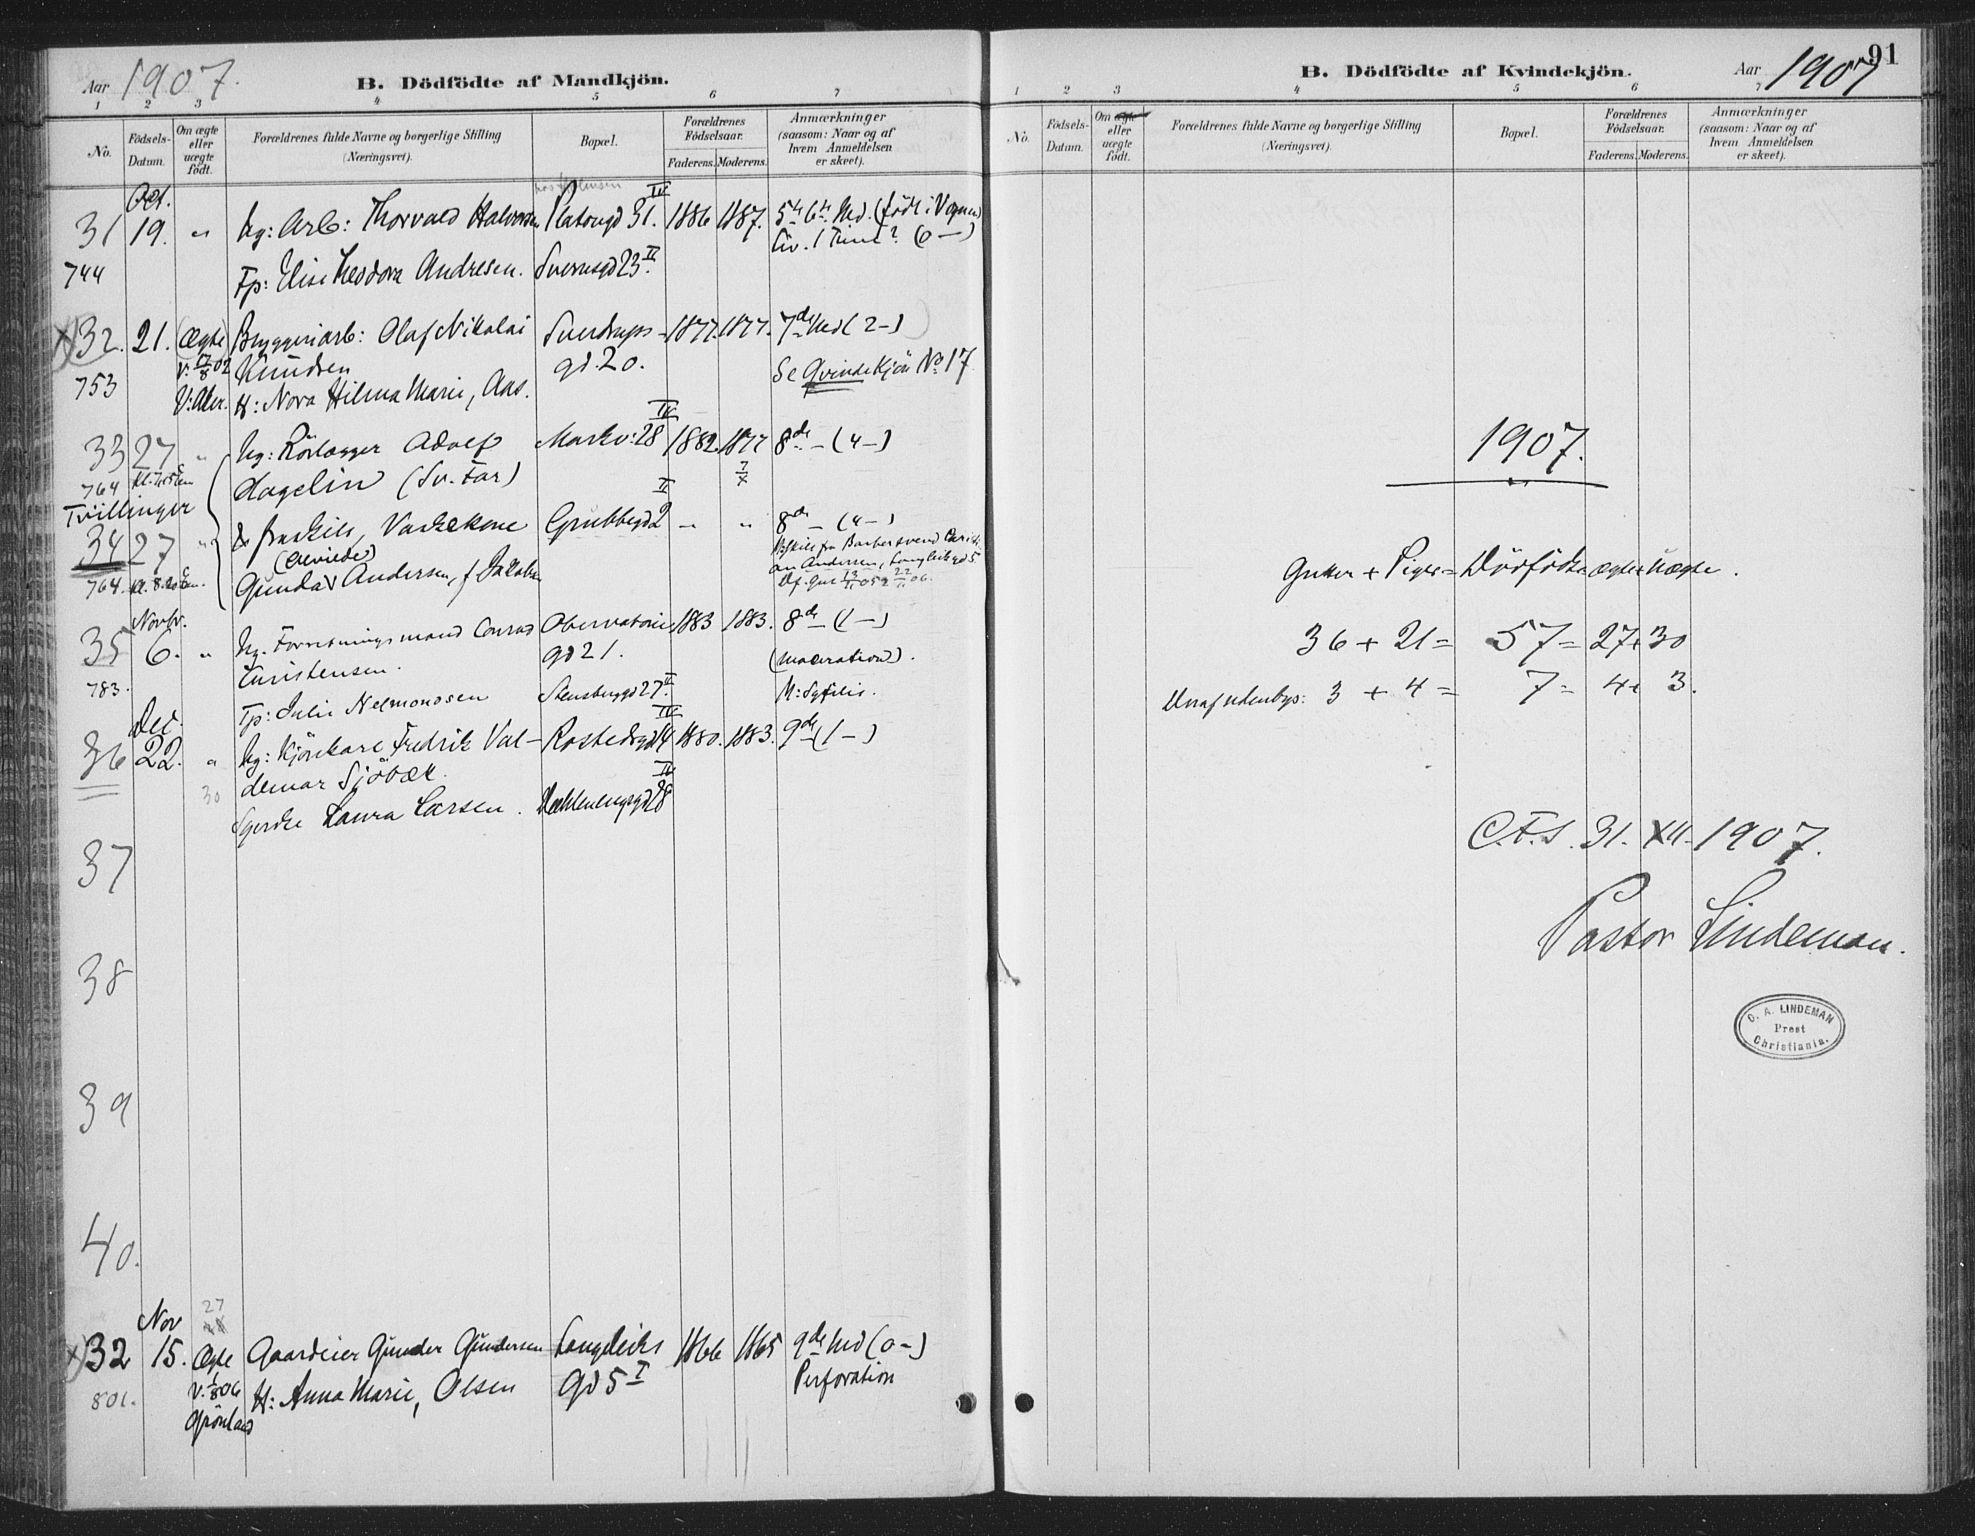 Aar 1907.
B. Dödfödte af Mandkjön.
1 2 3 4 5 6 7
No.
Födsels-Datum.
Om ægte eller uægte födt.
Forældrenes fulde Navne og borgerlige Stilling (Næringsvei).
Bopæl.
Forældrenes Födselsaar.
Faderens. Moderens.
Anmærkninger (saasom: Naar og af hvem Anmeldelsen er skeet).
Oct.
31 19. " Ug: Arb: Thorvald Halvorsen Platousgd 31. IV 1886 1887. 5te 6te Md. (födt i Vognen)
Liv. 1 Time? (0 —)
744 Fp: Elise Theodora Andresen. Sverresgd 23. II
x) 32. 21. (Ægte) Bryggeriarb: Olaf Nikolai Sverdrups- 1877. 1877. 7de Md (2—)
V. 17/8 02 Knudsen gd. 20. Se Qvindekjön No 17
753 V: Aker. H: Nora Hilma Marie, Aas.
33 27 " Ug: Rörlægger Adolf Markv: 28 IV 1882 1877 8de — (4—)
764 Hagelin (Sv. Far) 7/x
Tvillinger
34 27 " Fraskilt, Vaskekone Grubbegd 2 II " " 8de — (4—)
(Alvilde)
764. Kl. 8.20 Em. Gunda Andersen, f Jakobsen
Skilt fra Barbersvend Christian Andersen, Langleiksgd 5
Novbr.
35 6. " Ug. Forretningsmand Conrad Observatorie 1883 1883. 8de — (1—)
Christensen. gd 21. (maceration).
783. Fp: Julie Nelmondsen Stensberggd 27. II M: Syfilis.
Dec.
36 22. " Ug: Kjörekarl Fredrik Val- Rostedsgd 14 IV 1880. 1883. 9de (1—)
demar Sjöbæk.
30 Syerske Laura Larsen. Dælenenggd 28 IV
37
38
39
40.
Nov 27
x) 32 15. Ægte Gaardeier Gunder Gundersen Langleiks 1866 1865 9de Md (0—)
801. V. 1/8 06 H: Anna Marie, Olsen gd 5 I Perforation
Grönland
B. Dödfödte af Kvindekjön.
Aar 1907
91
1 2 3 4 5 6 7
No.
Födsels-Datum.
Om ægte eller uægte födt.
Forældrenes fulde Navne og borgerlige Stilling (Næringsvei).
Bopæl.
Forældrenes Födselsaar.
Faderens. Moderens.
Anmærkninger (saasom: Naar og af hvem Anmeldelsen er skeet).
1907.
Gutter + Piger = Dödfödte = ægte + uægte.
36 + 21 = 57 = 27 + 30
Deraf udenbys: 3 + 4 = 7 = 4 + 3.
C.F.S. 31. XII. 1907.
Pastor Lindeman.
O. A. LINDEMAN
Prest
Christiania.